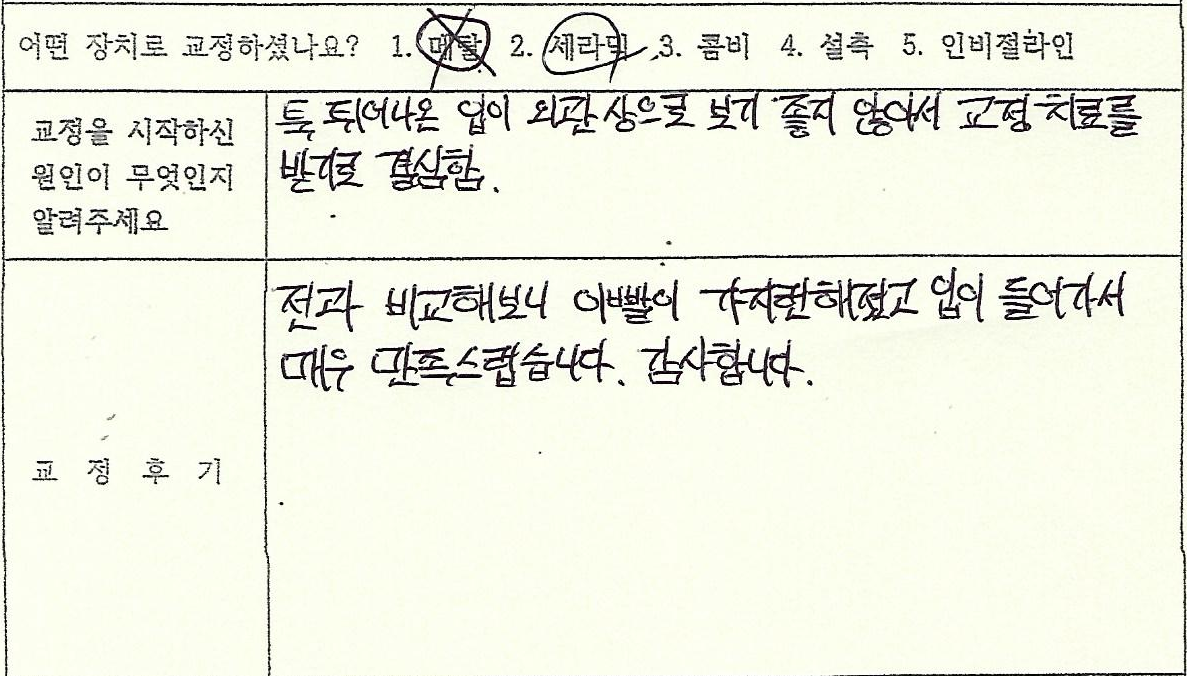 어떤 장치로 교정하셨나요? 1. 메탈 2. 세라믹 3. 콤비 4. 설측 5. 인비절라인
교정을 시작하신
원인이 무엇인지
알려주세요
툭 튀어나온 입이 외관상으로 보기 좋지 않아서 교정 치료를
받기로 결심함.
교 정 후 기
전과 비교해보니 이빨이 가지런해졌고 입이 들어가서
매우 만족스럽습니다. 감사합니다.